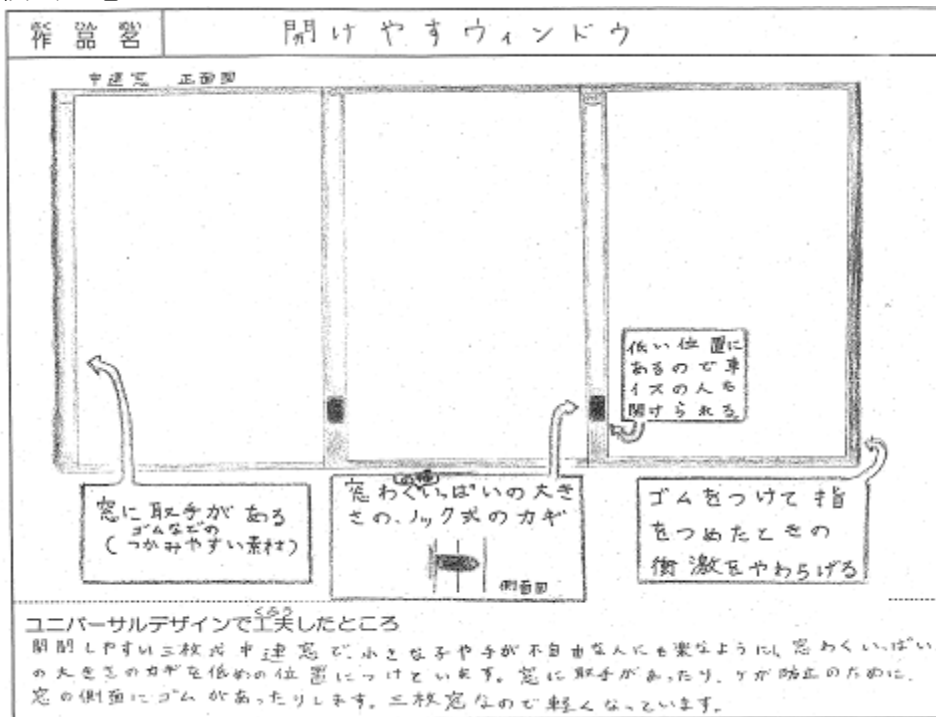 作品名 開けやすウィンドウ
中連窓 正面図
低い位置に
あるので車
イスの人も
開けられる。
窓に取手がある
ゴムなどの
(つかみやすい素材)
の幅
窓わくいっぱいの大き
さの、ノック式のカギ
側面図
ゴムをつけて指
をつめたときの
衝激をやわらげる
くふう
ユニバーサルデザインで工夫したところ
開閉しやすい三枚式中連窓で、小さな子や手が不自由な人にも楽なように、窓わくいっぱい
の大きさのカギを低めの位置につけています。窓に取手があったり、ケガ防止のために、
窓の側面にゴムがあったりします。三枚窓なので軽くなっています。